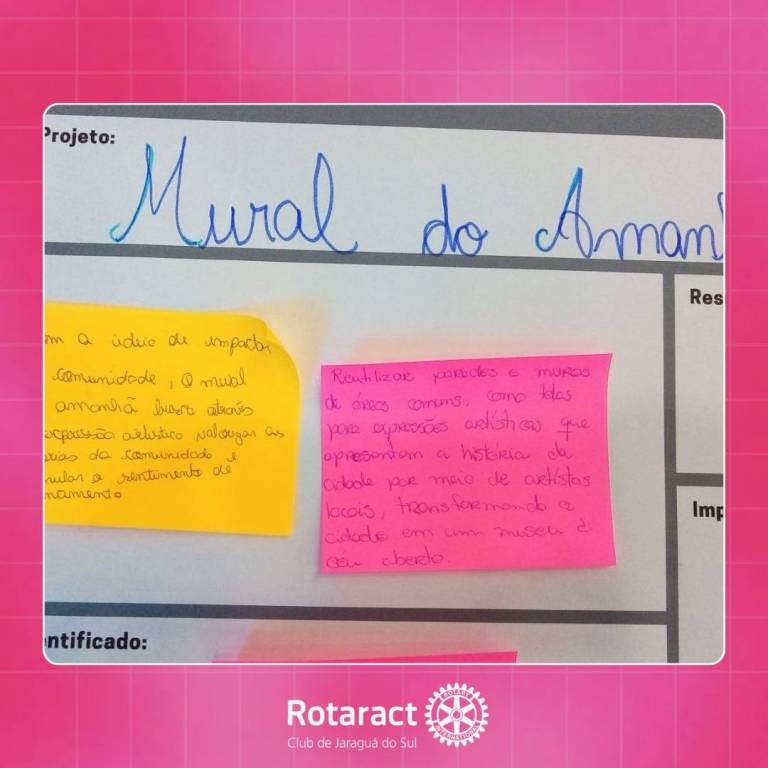 Projeto:
Mural do Aman
Res
m a ideia de impactar
comunidade, o mural
amanhã busca através
expressão artística valorizar as
rias da comunidade e
mular o sentimento de
ncimento
Reutilizar paredes e muros
de áreas comuns, como telas
para expressões artísticas que
apresentam a história da
cidade por meio de artistas
locais, transformando a
cidade em um museu à
céu aberto.
Imp
entificado:
Rotaract
Club de Jaraguá do Sul
ROTARY
INTERNATIONAL